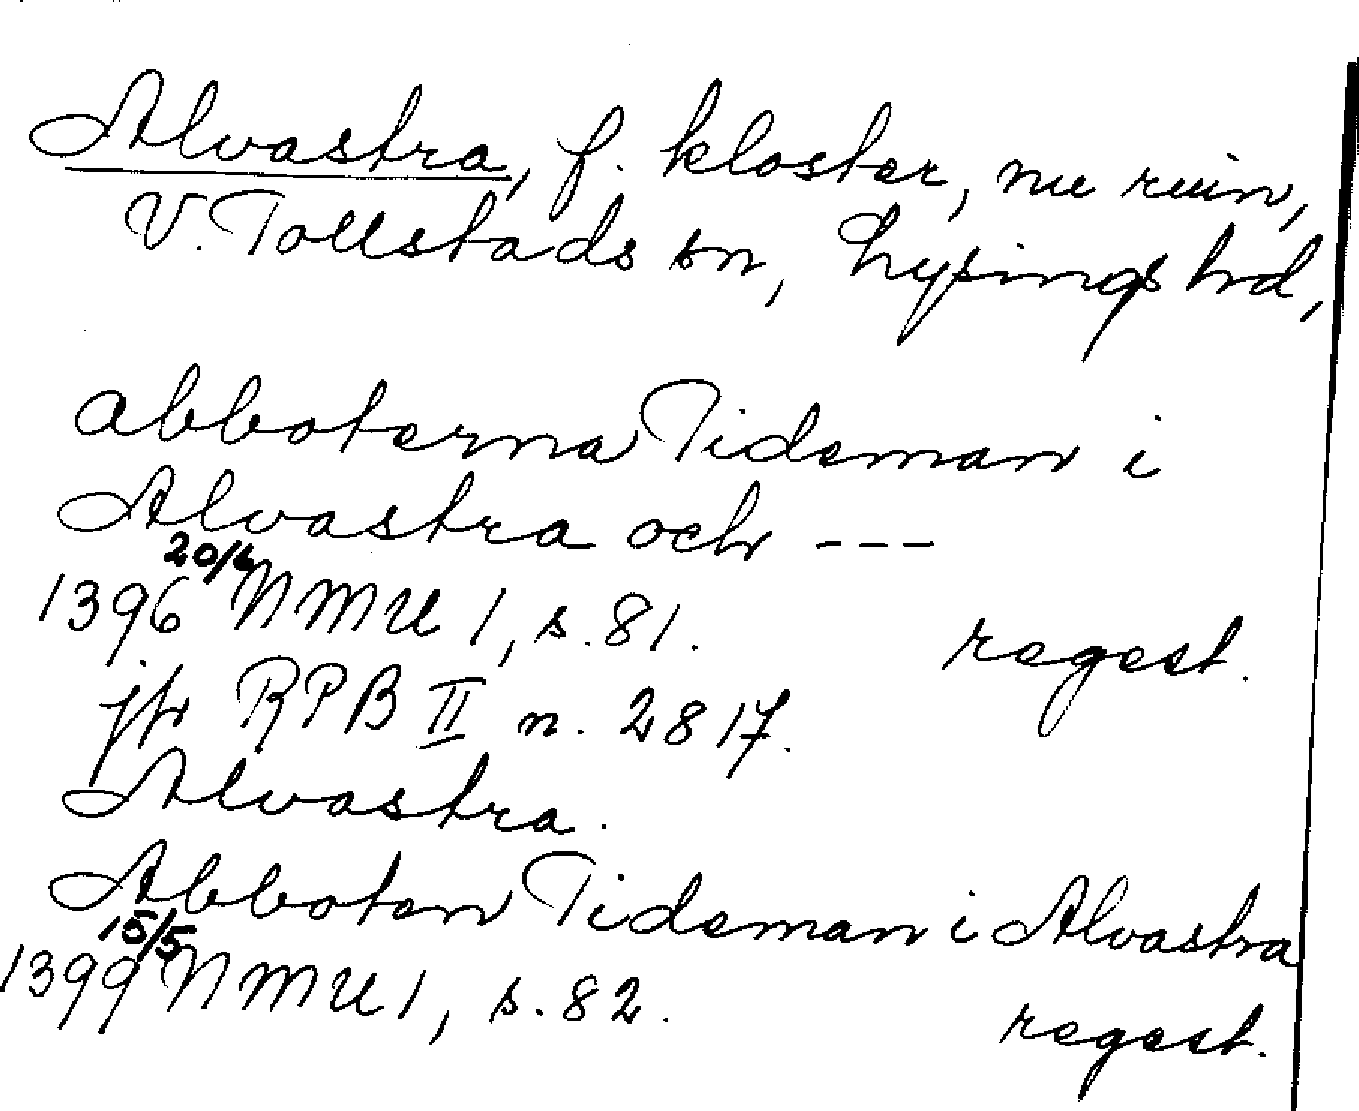 Alvastra, f. kloster, nu ruin,
V. Tollstads sn, Lysings hd,
abboterna Tideman i
Alvastra och ---
20/6
1396 NMU 1, s. 81. regest.
jfr RPB II n. 2817.
Alvastra.
Abboten Tideman i Alvastra
15/5
1399 NMU 1, s. 82. regest.